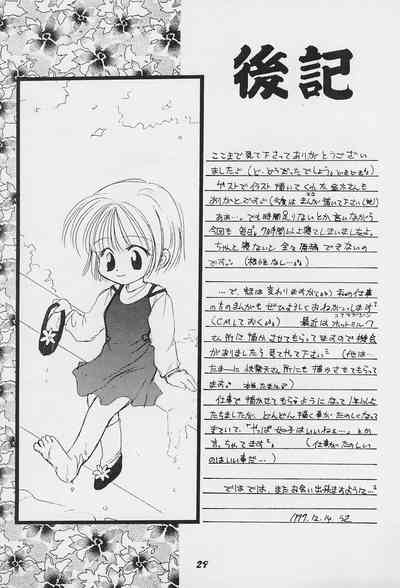 後記
ここまで見て下さってありがとうござい
ました♪(ど・どうだったでしょう。いまひとつ?)
ゲストでイラスト描いてくれた さんも
ありがとですっ♪(今度はまんが描いて下さい(笑))
ああっ。でも時間足りないとか言いながら
今回も毎日。7時間以上寝てしまいましたよ。
ちゃんと寝ないと全々原稿できないの
です。(根性なし…。)
…で、話は変わりますが お仕事
の方のまんがもぜひよろしくおねがいします
(CMしておく。) 最近はホットミルク
さん所に描かさせてもらってますので機会
がありましたら見てやって下さい (他は…
たまーに さん所にも描かさせてもらって
ます。 )
仕事で描かせてもらうようになって1年くらい
たちましたが、どんどん描く事がたのしくなって
きていて、「やっぱ 子はいいねぇ…。」とか
言ってます。(仕事がたのしい
のはいい事だ…)
ではでは、またお会い出来ますように…
1997.12.14
29